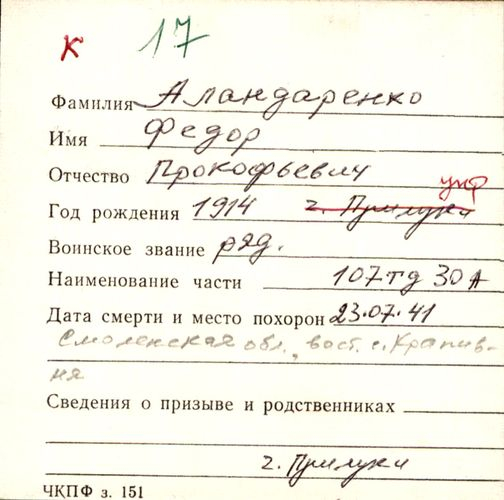 К 17
Фамилия Аландаренко
Имя Федор
Отчество Прокофьевич
укр
Год рождения 1914 г. Прилуки
Воинское звание ряд.
Наименование части 107тд 30А
Дата смерти и место похорон 23.07.41
Смоленская обл., вост. с. Крапив-
ня
Сведения о призыве и родственниках
г. Прилуки
ЧКПФ з. 151